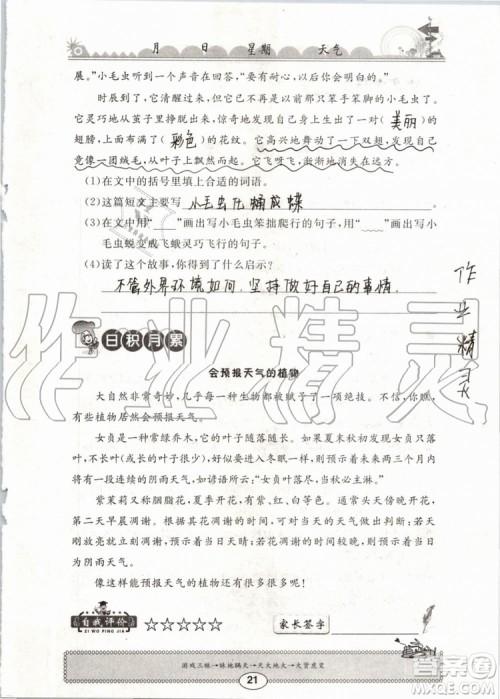 月 日 星期 天气
展。”小毛虫听到一个声音在回答,“要有耐心,以后你就明白了。”
时辰到了,它清醒过来,但它已不再是以前那只笨手笨脚的小毛虫,
它灵巧地从茧子里挣脱出来,惊奇地发现自己身上生出一对(美丽)的
翅膀,上面布满了(彩色)的花纹。它高兴地舞动了一下双翅,发现自己
竟像一团绒毛,从叶子上飘然而起。它飞呀飞,渐渐地消失在远方。
(1)在文中的括号里填上合适的词语。
(2)这篇短文主要写 小毛虫化蛹成蝶
(3)在文中用“ ”画出写小毛虫笨拙爬行的句子,用“ ”画出写小
毛虫蜕变成飞蛾灵巧飞行的句子。
(4)读了这个故事,你得到什么启示?
不管外界环境如何,坚持做好自己的事情.
作业精灵
作业精灵
日积月累
会预报天气的植物
大自然非常奇妙,几乎每一种生物都被赋予了一项绝技。不可思议的是,
有些植物居然会预报天气。
女贞是一种常绿乔木,它的叶子随落随长。如果夏末秋初发现女贞落
叶,不长(或长的叶子很少),好似要进入冬眠一样,预示再过两三个月内
将有一段较长的阴雨天气,如谚语所云:“女贞叶落尽,当秋必主淋。”
紫茉莉又称胭脂花,夏季开花,有紫、红、白等色。通常每天傍晚开花,
第二天早晨凋谢。根据其花凋谢的时间,可对当天的天气作出预报:若天
刚放亮就凋谢,预示当日天晴;若花凋谢的时间较晚,则预示着当日为
为阴雨天气。
像这样能预报天气的植物还有很多很多呢!
自我评价
ZI WO PING JIA
家长签字
21
答案圈